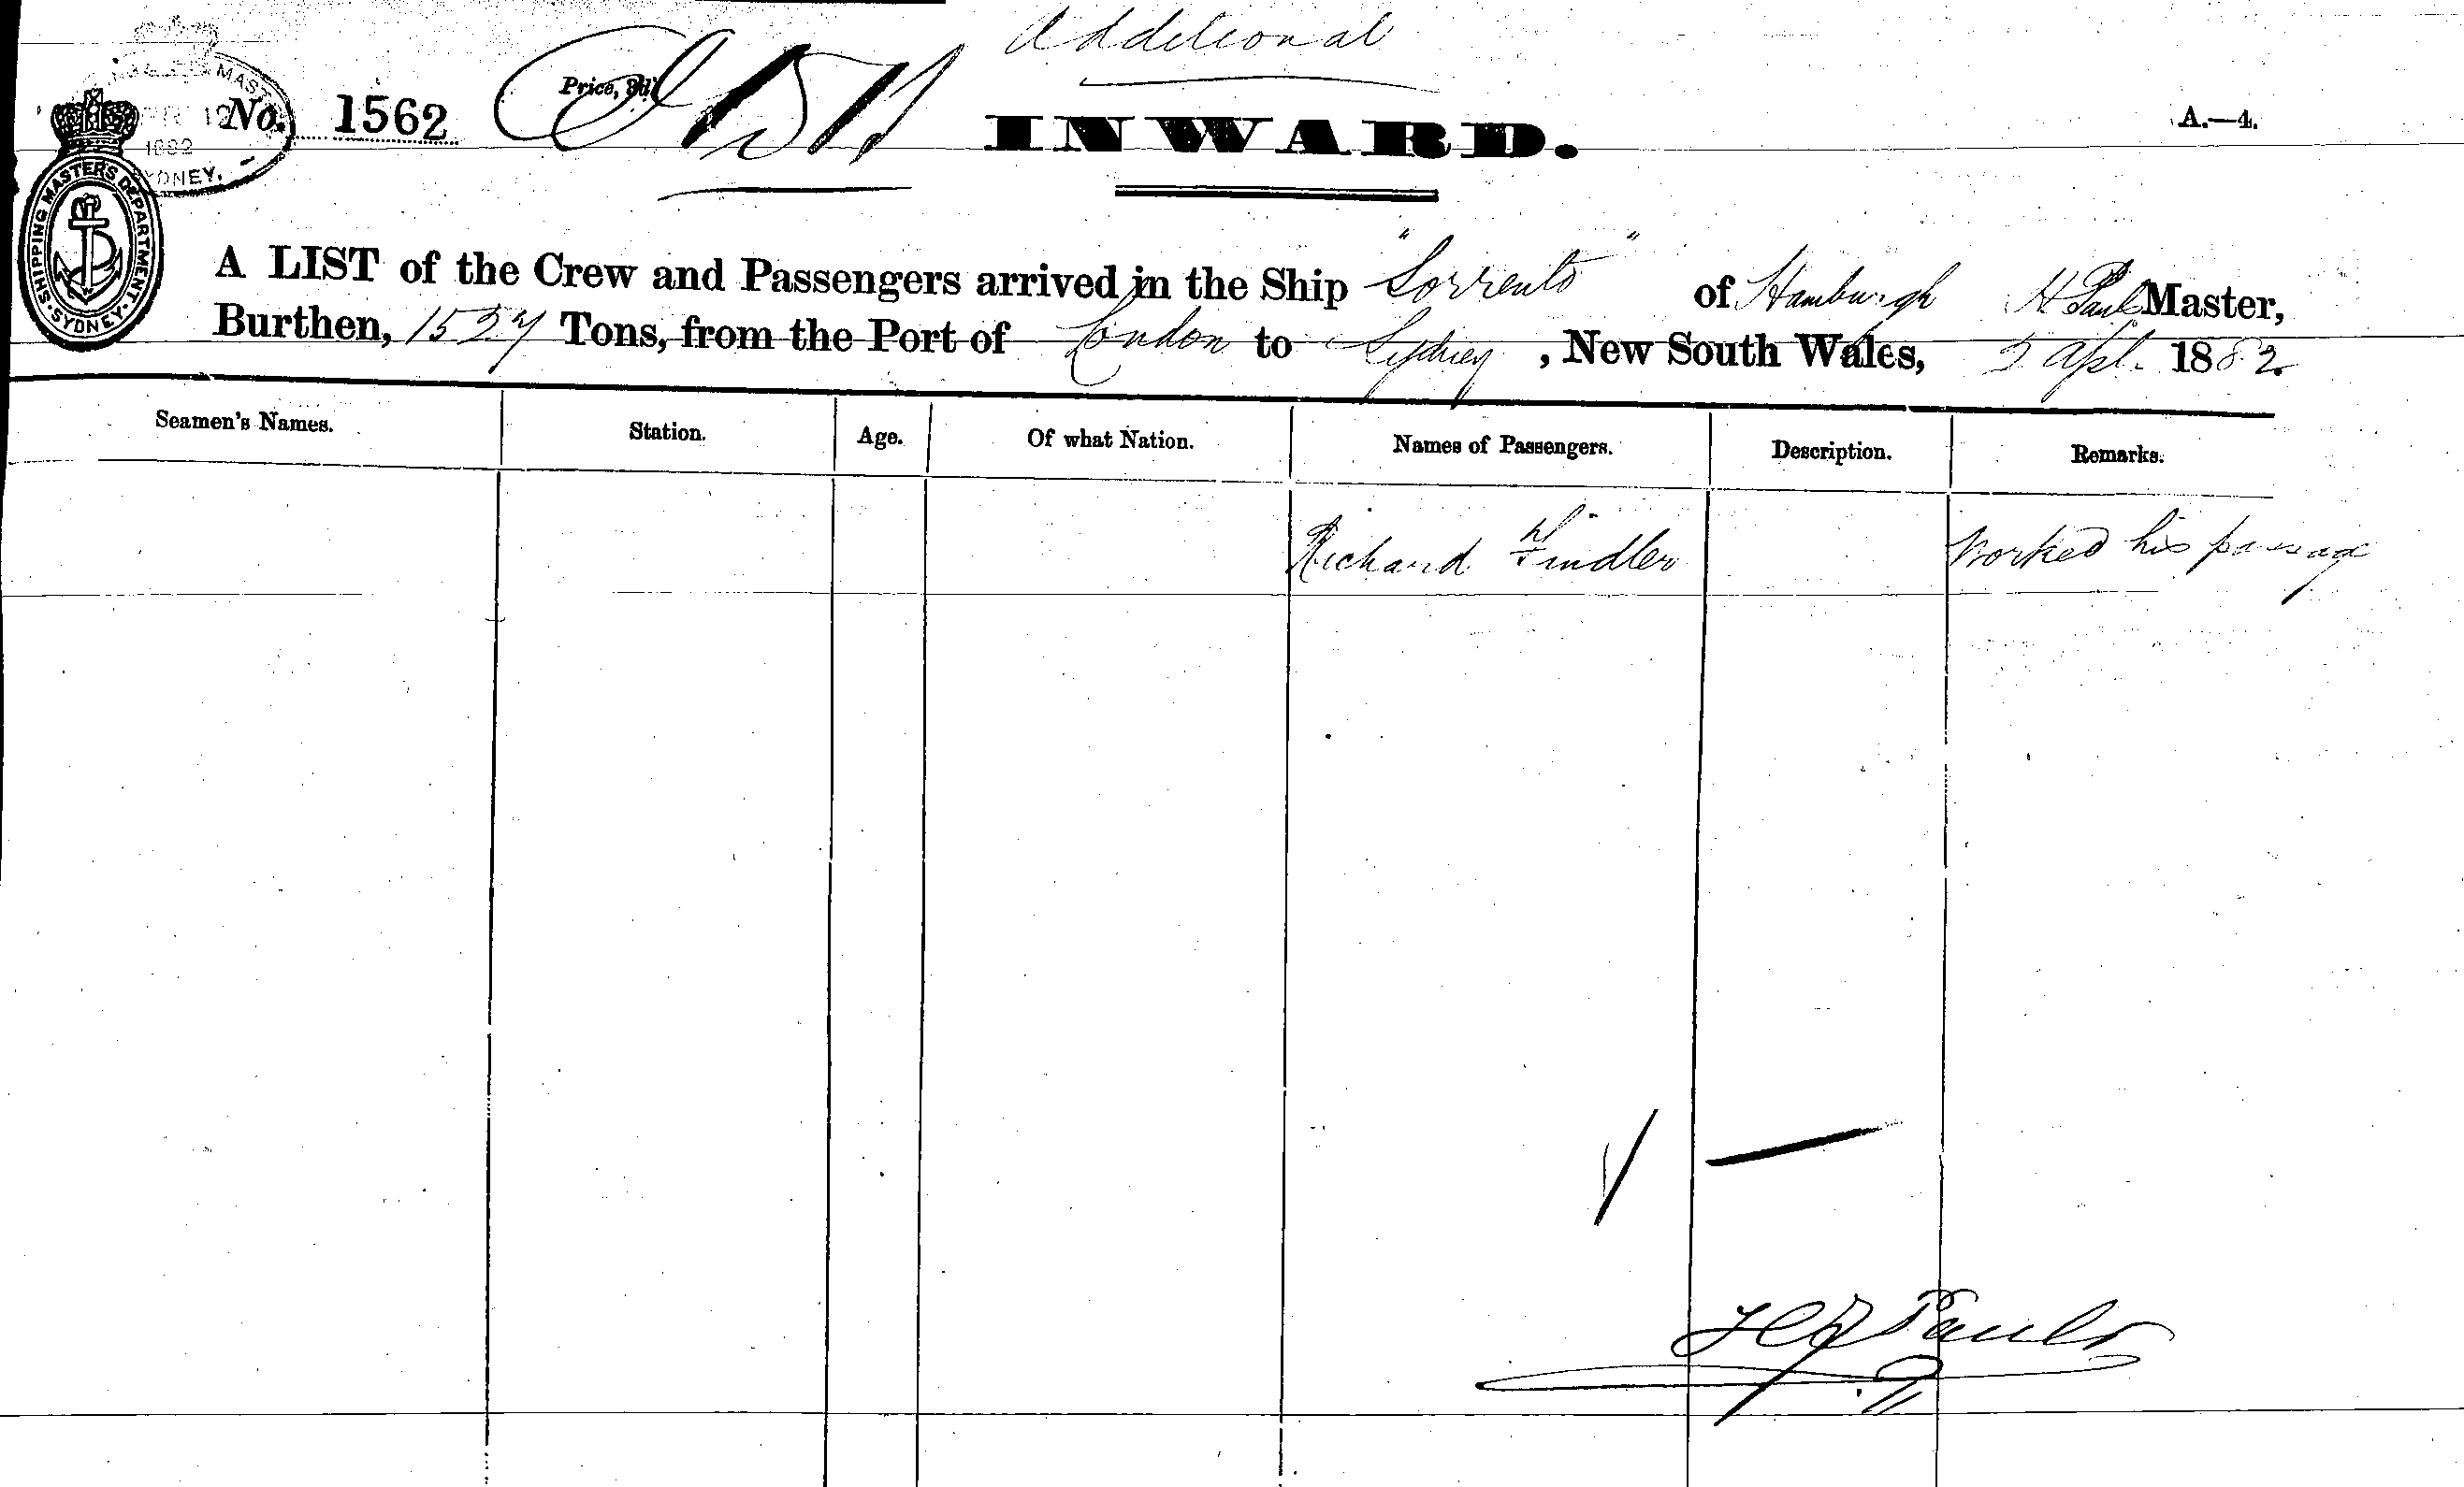 Additional
No. 1562
Price, 3d.
INWARD.
A.—4.
MAST
1882
YDNEY.
SHIPPING MASTERS DEPARTMENT. SYDNEY.
A LIST of the Crew and Passengers arrived in the Ship "Sorrento" of Hamburgh H Paul Master,
Burthen, 1527 Tons, from the Port of London to Sydney, New South Wales, 5 Apl. 1882
Seamen's Names. Station. Age. Of what Nation. Names of Passengers. Description. Remarks.
Richard Findler Worked his passage